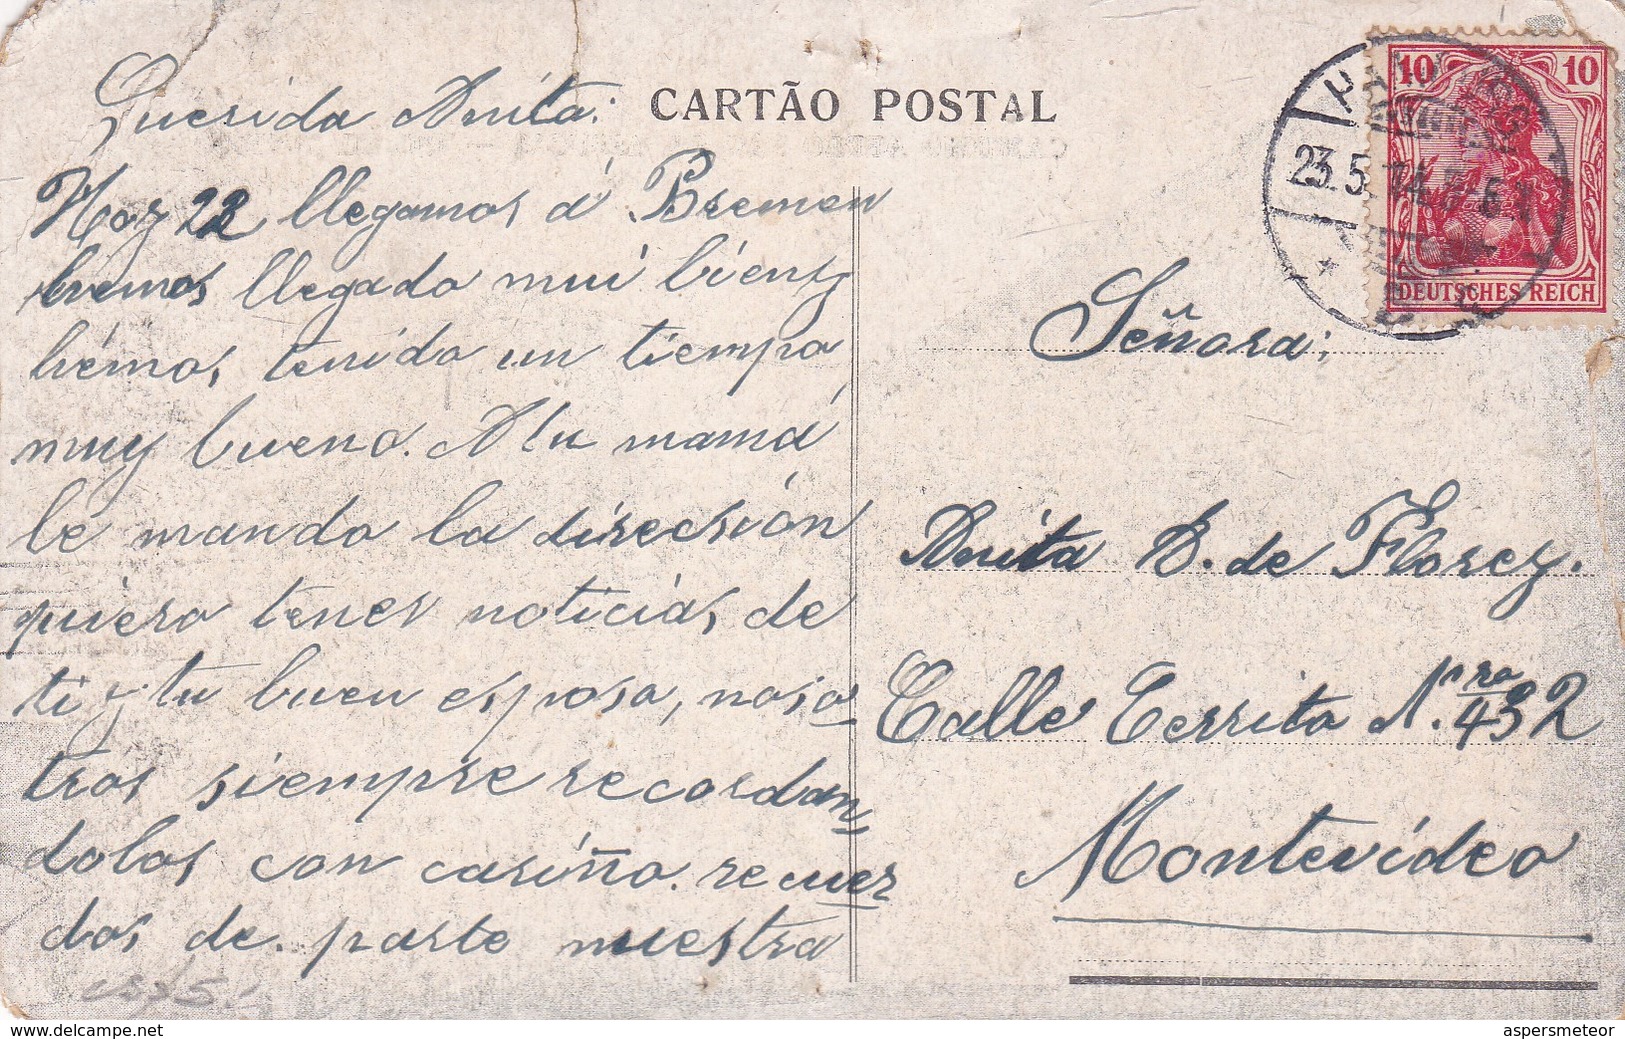 CARTÃO POSTAL
Querida Anita:
Hoy 22 llegamos á Bremen
hemos llegado mui bien y
hémos tenido un tiempo
muy bueno. A tu mamá
le mando la direcsión
quiero tener noticias de
ti y tu buen esposo, noso
tros siempre recordan
dolos con cariño. recuer
dos de parte nuestra
10 10
DEUTSCHES REICH
23.5.14.5-6
Señora:
Anita B. de Florez.
Calle Cerrito N.ro 432
Montevideo
aspersmeteor